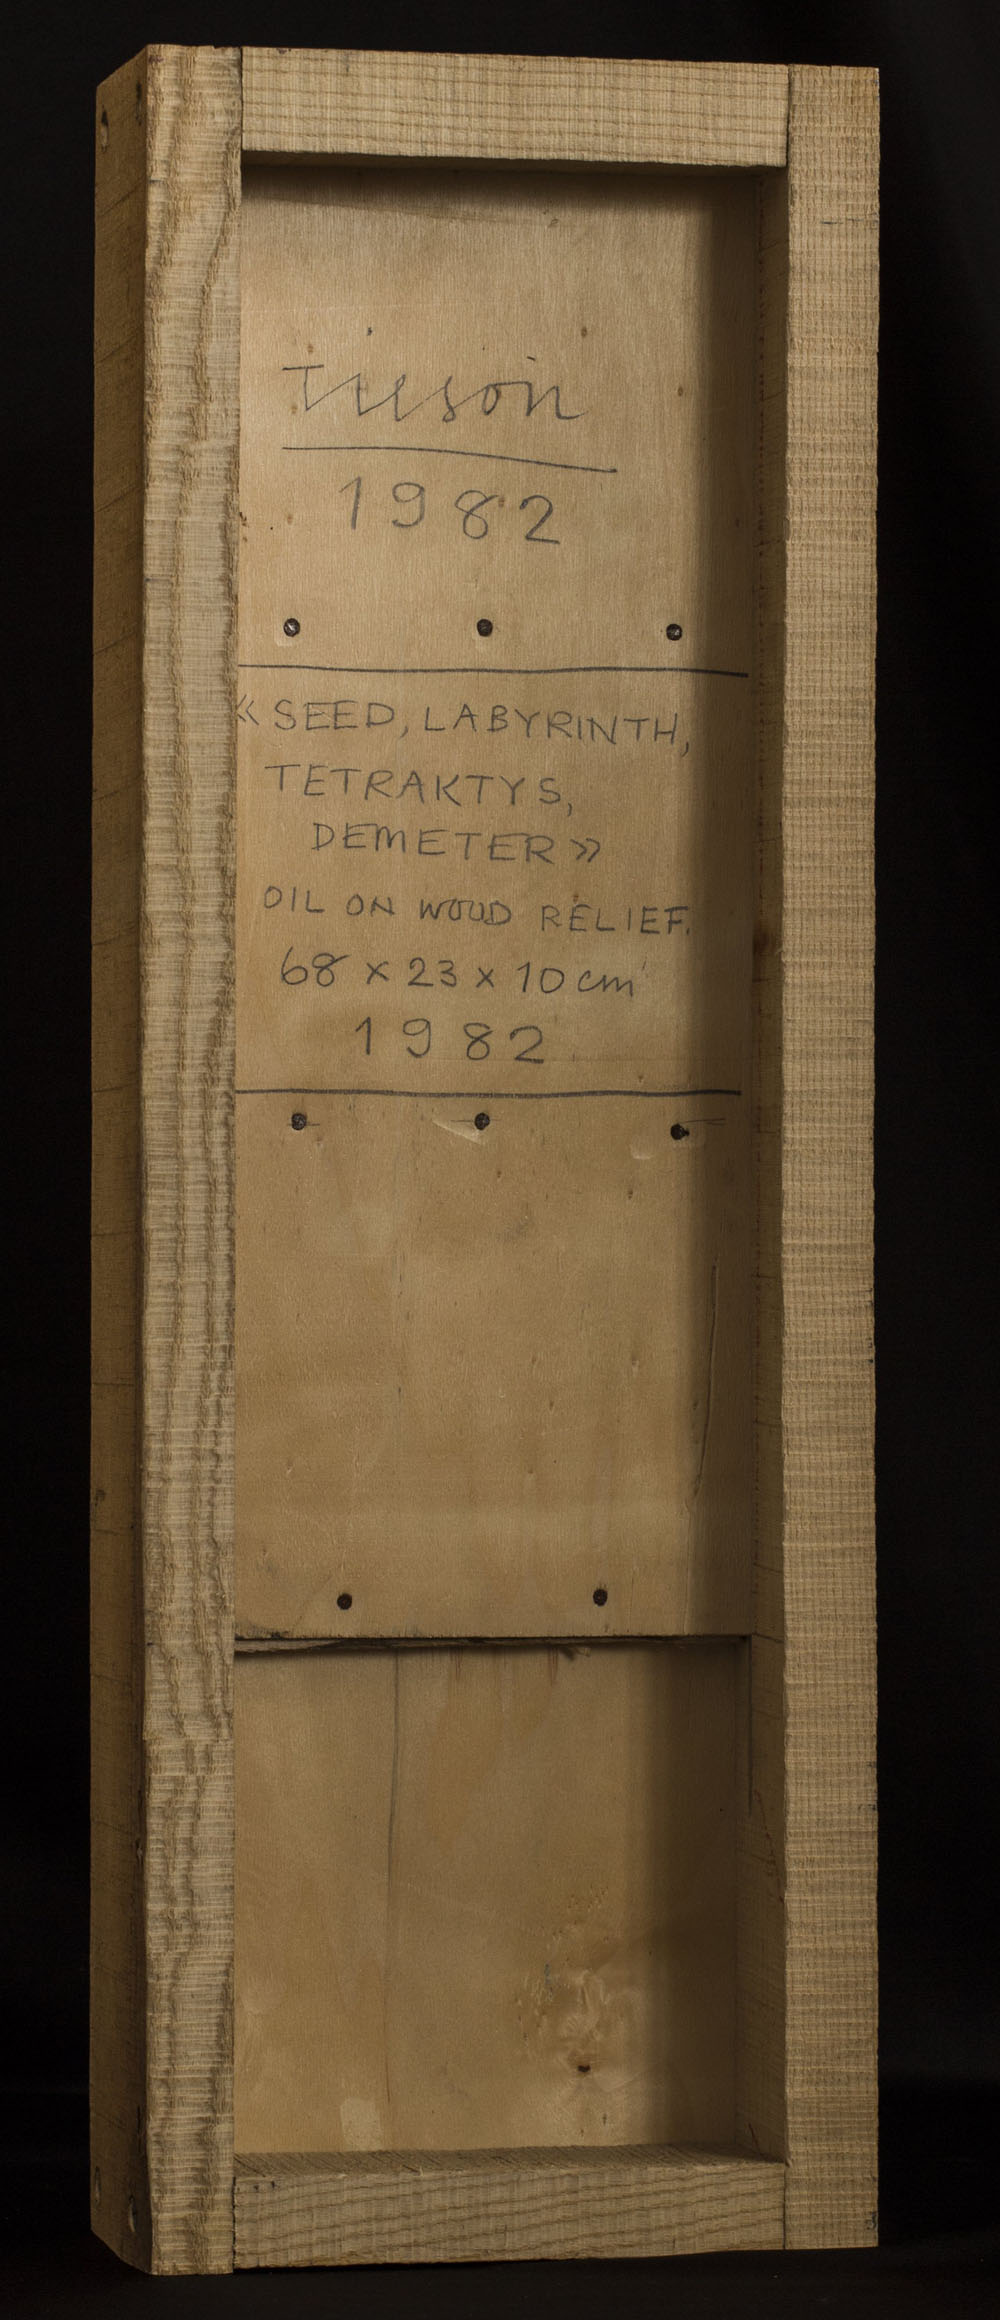 Tilson
1982
« SEED, LABYRINTH,
TETRAKTYS,
DEMETER »
OIL ON WOOD RELIEF.
68 x 23 x 10 cm
1982